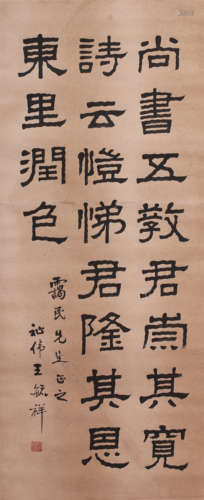 尚書五教君崇其寬
詩云愷悌君隆其恩
東里潤色
靄民先生正之
祉伟王毓祥